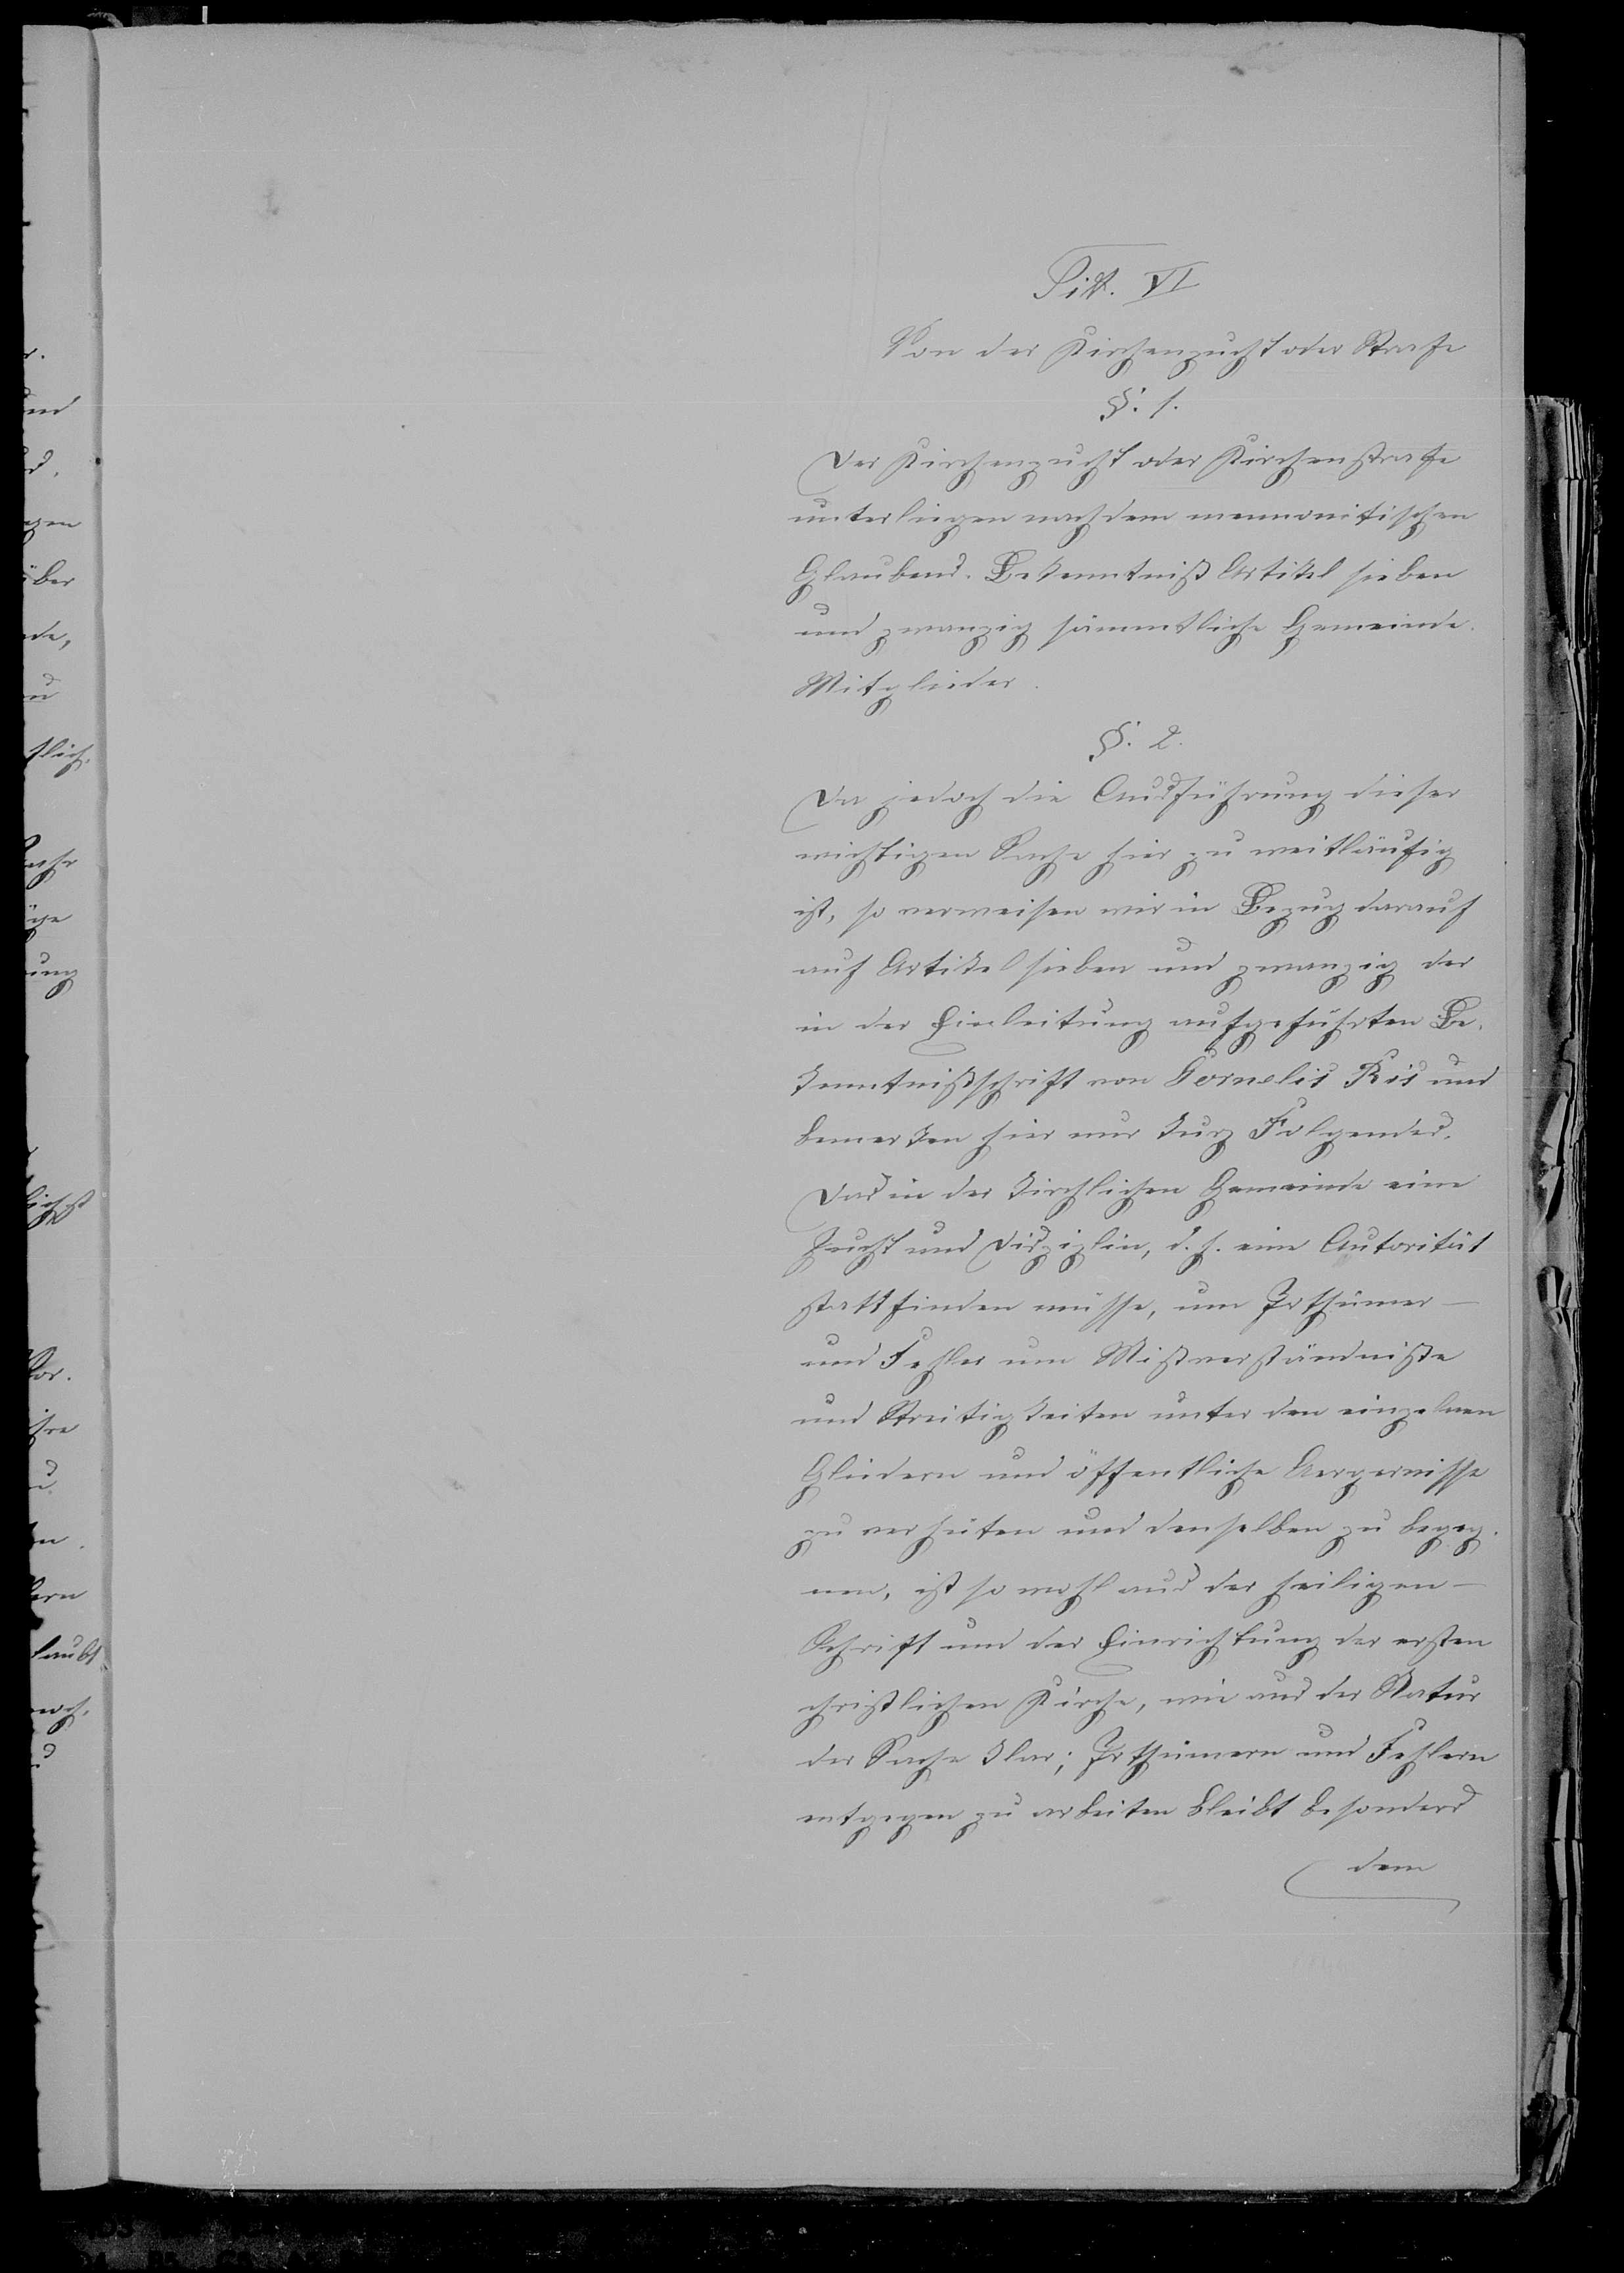 Tit. VI
Von der Kirchenzucht oder Strafe
§. 1.
Der Kirchenzucht oder Kirchenstrafe
unterliegen nach dem mennonitischen
Glaubens-Bekenntniß Artikel sieben
und zwanzig sämmtliche Gemeinde-
Mitglieder.
§. 2.
Da jedoch die Ausführung dieser
wichtigen Sache hier zu weitläufig
ist, so verweisen wir in Bezug darauf
auf Artikel sieben und zwanzig der
in der Einleitung aufgeführten Be-
kenntnißschrift von Cornelis Ris und
bemerken hier nur kurz Folgendes.
Das in der kirchlichen Gemeinde eine
Zucht und Disziplin, d. h. eine Autorität
stattfinden müsse, um Irthümer
und Fehler um Mißverständniße
und Streitigkeiten unter den einzelnen
Gliedern und öffentliche Aergernisse
zu verhüten und denselben zu begeg-
nen, ist so wohl aus der heiligen
Schrift und der Einrichtung der ersten
christlichen Kirche, wie aus der Natur
der Sache klar; Irthümern und Fehlern
entgegen zu arbeiten bleibt besonders
dem